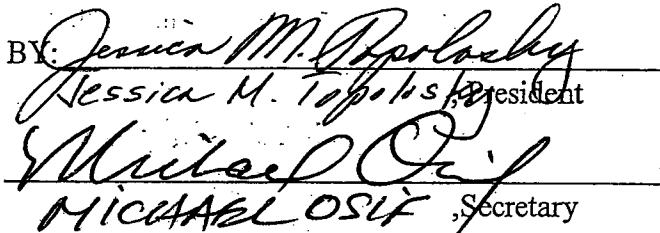 BY: Jessica M. Topolosky
Jessica M. Topolosky, President
Michael Osif
MICHAEL OSIF, Secretary